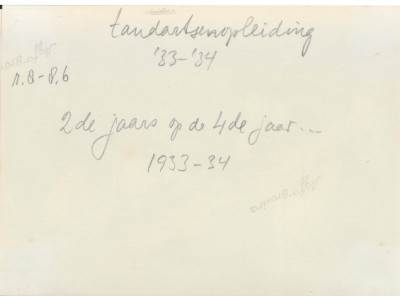 tandartsenopleiding
'33-'34
r.B-P,6
2de jaars op de 4de jaar...
1933-34